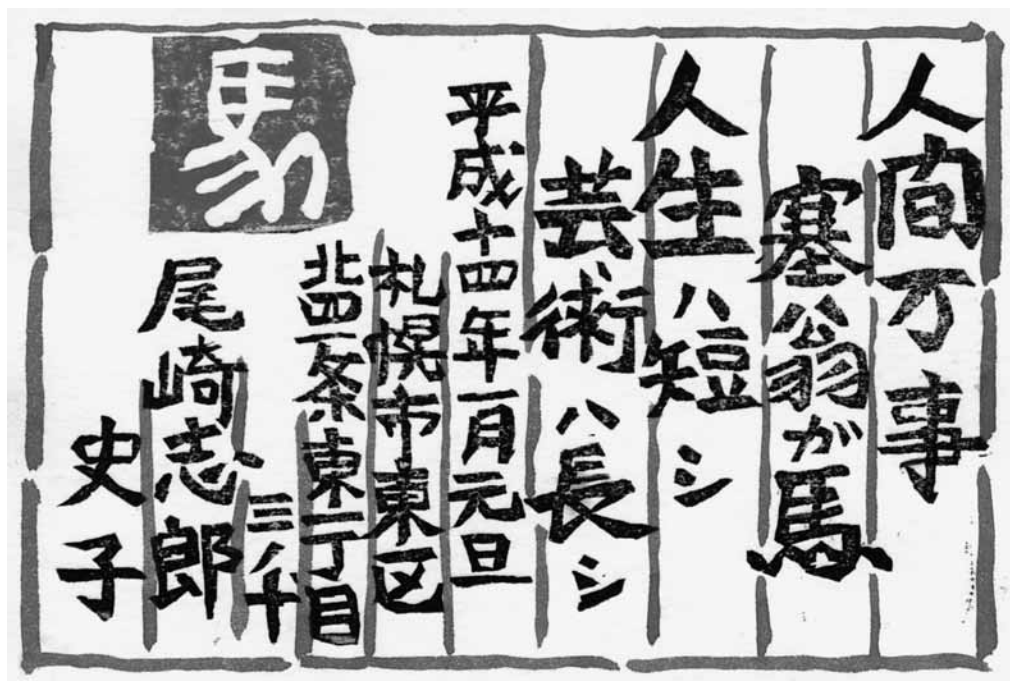 人間万事
塞翁が馬
人生ハ短シ
芸術ハ長シ
平成十四年一月元旦
札幌市東区
北四一条東一丁目
三ノ十
馬
尾崎志郎
史子